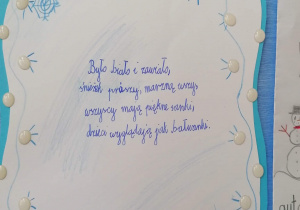 Było biało i zawiało,
śnieżek prószy, marzną uszy,
wszyscy mają piękne sanki,
dzieci wyglądają jak bałwanki.